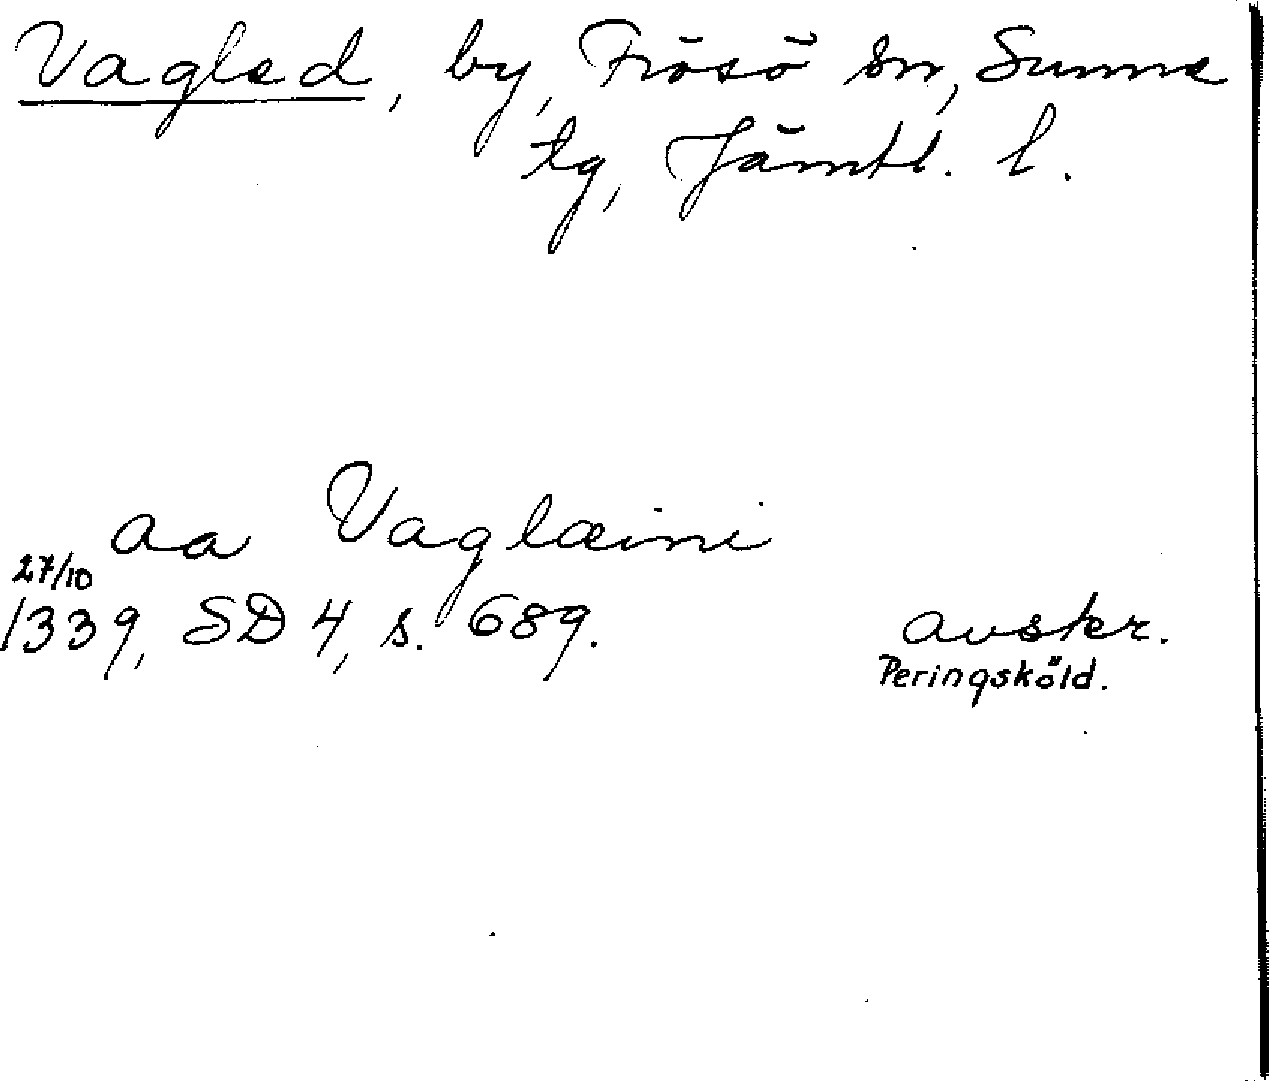 Vagled, by, Frösö sn, Sunne
tg, Jämtl. l.
aa Vaglæimi
27/10
1339, SD 4, s. 689.
avskr.
Peringsköld.